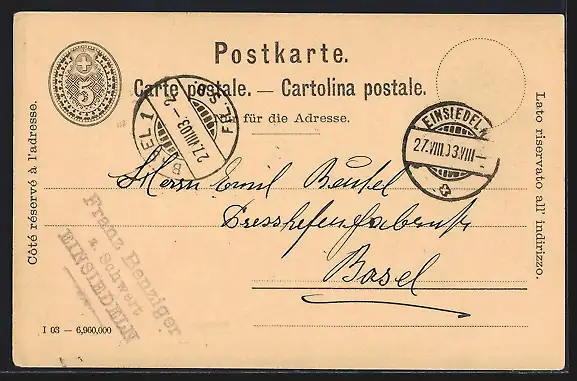 Postkarte.
Carte postale. — Cartolina postale.
Nur für die Adresse.
5
BASEL 1
27.VIII.03. - 2
EINSIEDELN
27.VIII.03.VIII
Côté réservé à l'adresse.
Lato riservato all' indirizzo.
Herrn Emil Beutel
Presshefenfabrik
Basel
Franz Benziger
z. Schwert
EINSIEDELN
I 03 — 6,960,000